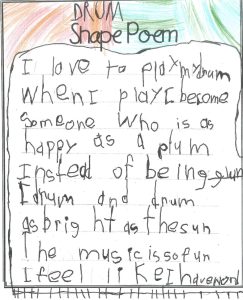 DRUM
Shape Poem
I love to play my drum
When I play I become
Someone who is as
happy as a plum
Instead of being glum
I drum and drum
as bright as the sun
The music is so fun
I feel like I have won